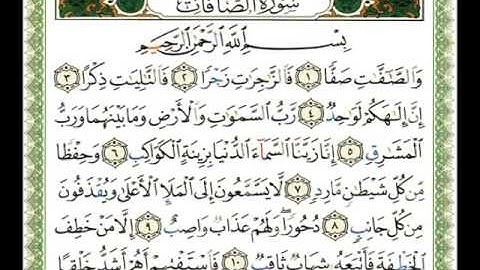 سُورَةُ الصَّافَّاتِ
بِسْمِ اللَّهِ الرَّحْمَٰنِ الرَّحِيمِ
وَالصَّافَّاتِ صَفًّا ١ فَالزَّاجِرَاتِ زَجْرًا ٢ فَالتَّالِيَاتِ ذِكْرًا ٣
إِنَّ إِلَٰهَكُمْ لَوَاحِدٌ ٤ رَبُّ السَّمَاوَاتِ وَالْأَرْضِ وَمَا بَيْنَهُمَا وَرَبُّ
الْمَشَارِقِ ٥ إِنَّا زَيَّنَّا السَّمَاءَ الدُّنْيَا بِزِينَةٍ الْكَوَاكِبِ ٦ وَحِفْظًا
مِنْ كُلِّ شَيْطَانٍ مَارِدٍ ٧ لَا يَسَّمَّعُونَ إِلَى الْمَلَإِ الْأَعْلَىٰ وَيُقْذَفُونَ
مِنْ كُلِّ جَانِبٍ ٨ دُحُورًا وَلَهُمْ عَذَابٌ وَاصِبٌ ٩ إِلَّا مَنْ خَطِفَ
الْخَطْفَةَ فَأَتْبَعَهُ شِهَابٌ ثَاقِبٌ ١٠ فَاسْتَفْتِهِمْ أَهُمْ أَشَدُّ خَلْقًا